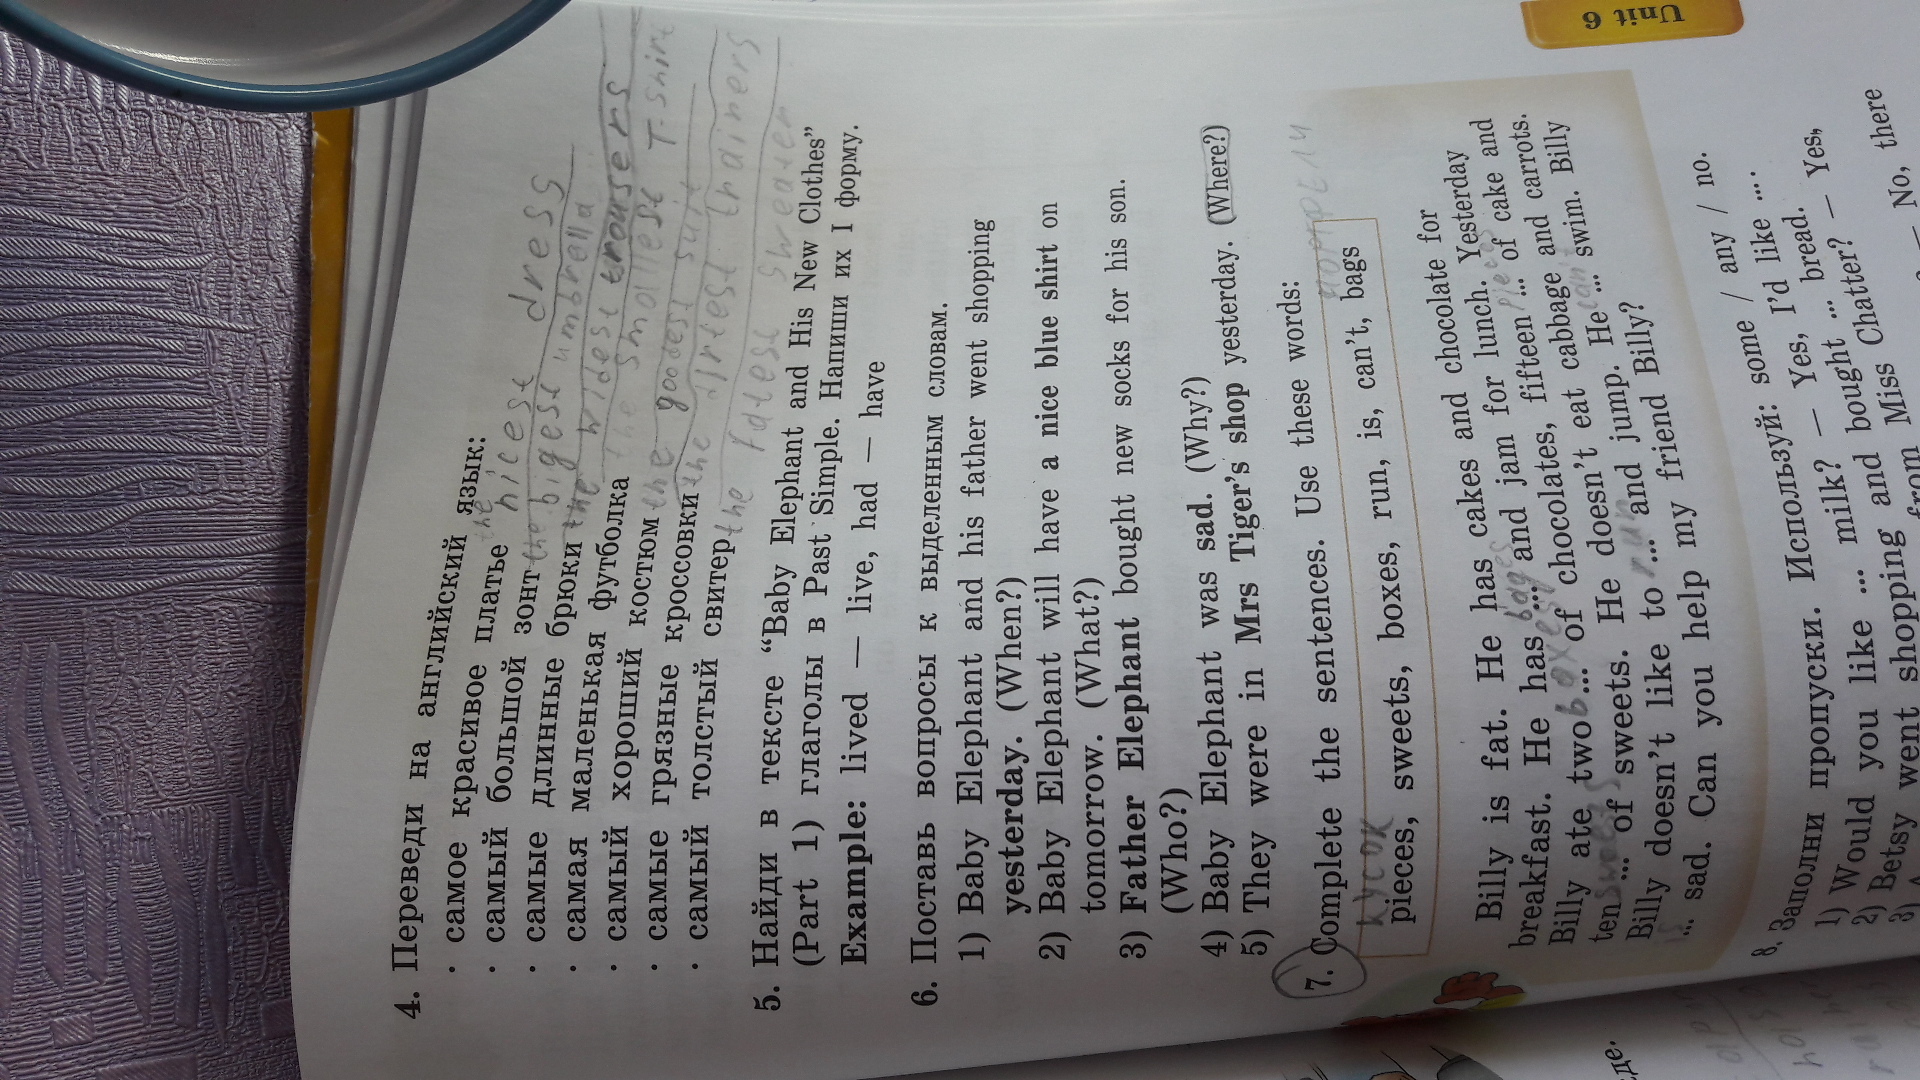 4. Переведи на английский язык:
· самое красивое платье the nicest dress
· самый большой зонт the bigest umbrella
· самые длинные брюки the widest trousers
· самая маленькая футболка the smollest T-shirt
· самый хороший костюм the goodest suit
· самые грязные кроссовки the dirtest trainers
· самый толстый свитер the fatest sweater
5. Найди в тексте “Baby Elephant and His New Clothes”
(Part 1) глаголы в Past Simple. Напиши их I форму.
Example: lived — live, had — have
6. Поставь вопросы к выделенным словам.
1) Baby Elephant and his father went shopping
yesterday. (When?)
2) Baby Elephant will have a nice blue shirt on
tomorrow. (What?)
3) Father Elephant bought new socks for his son.
(Who?)
4) Baby Elephant was sad. (Why?)
5) They were in Mrs Tiger’s shop yesterday. (Where?)
7. Complete the sentences. Use these words:
кусок
pieces, sweets, boxes, run, is, can’t, bags
Billy is fat. He has cakes and chocolate for
breakfast. He has ... and jam for lunch. Yesterday
Billy ate two boxes ... of chocolates, fifteen pieces ... of cake and
ten ... of sweets. He doesn’t eat cabbage and carrots.
Billy doesn’t like to run ... and jump. He can't ... swim. Billy
is ... sad. Can you help my friend Billy?
8. Заполни пропуски. Используй: some / any / no.
1) Would you like ... milk? — Yes, I’d like ....
2) Betsy went shopping and bought ... bread.
from Miss Chatter? — Yes,
— No, there
Unit 6